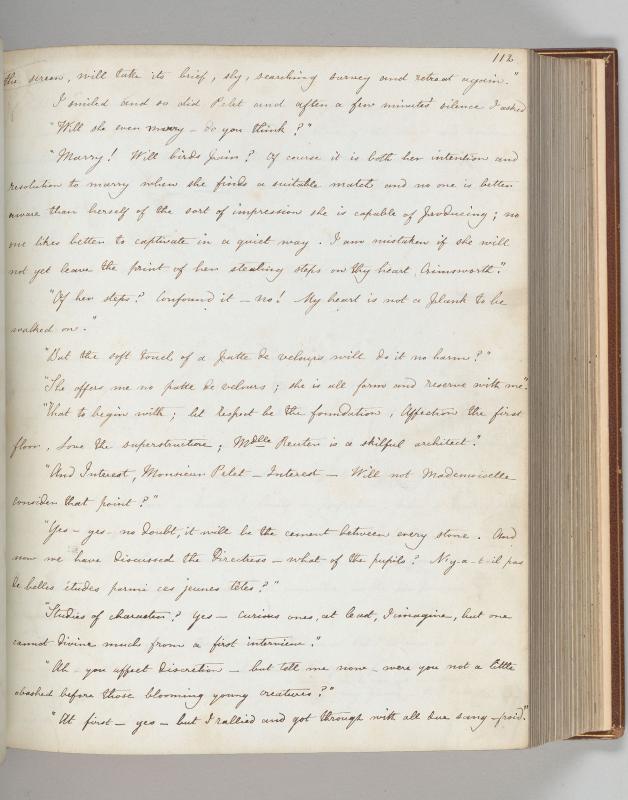 112
the screen, will take its brief, sly, searching survey and retreat again."
I smiled and so did Pelet and after a few minutes' silence I asked
"Will she ever marry - do you think?"
"Marry! Will birds pair? Of course it is both her intention and
resolution to marry when she finds a suitable match and no one is better
aware than herself of the sort of impression she is capable of producing; no
one likes better to captivate in a quiet way. I am mistaken if she will
not yet leave the print of her stealing steps on thy heart, Crimsworth."
"Of her steps? Confound it - no! My heart is not a plank to be
walked on."
"But the soft touch of a patte de velours will do it no harm?"
"She offers me no patte de velours; she is all form and reserve with me".
"That to begin with; let respect be the foundation, Affection the first
floor, Love the superstructure; Mdlle Reuter is a skilful architect."
"And Interest, Monsieur Pelet - Interest - Will not Mademoiselle
consider that point?"
"Yes - yes - no doubt, it will be the cement between every stone. And
now we have discussed the Directress - what of the pupils? N'y-a-t-il pas
de belles études parmi ces jeunes têtes?"
"Studies of character? Yes - curious ones, at least, I imagine, but one
cannot divine much from a first interview."
"Ah - you affect discretion - but tell me now - were you not a little
abashed before those blooming young creatures?"
"At first - yes - but I rallied and got through with all due sang-froid."